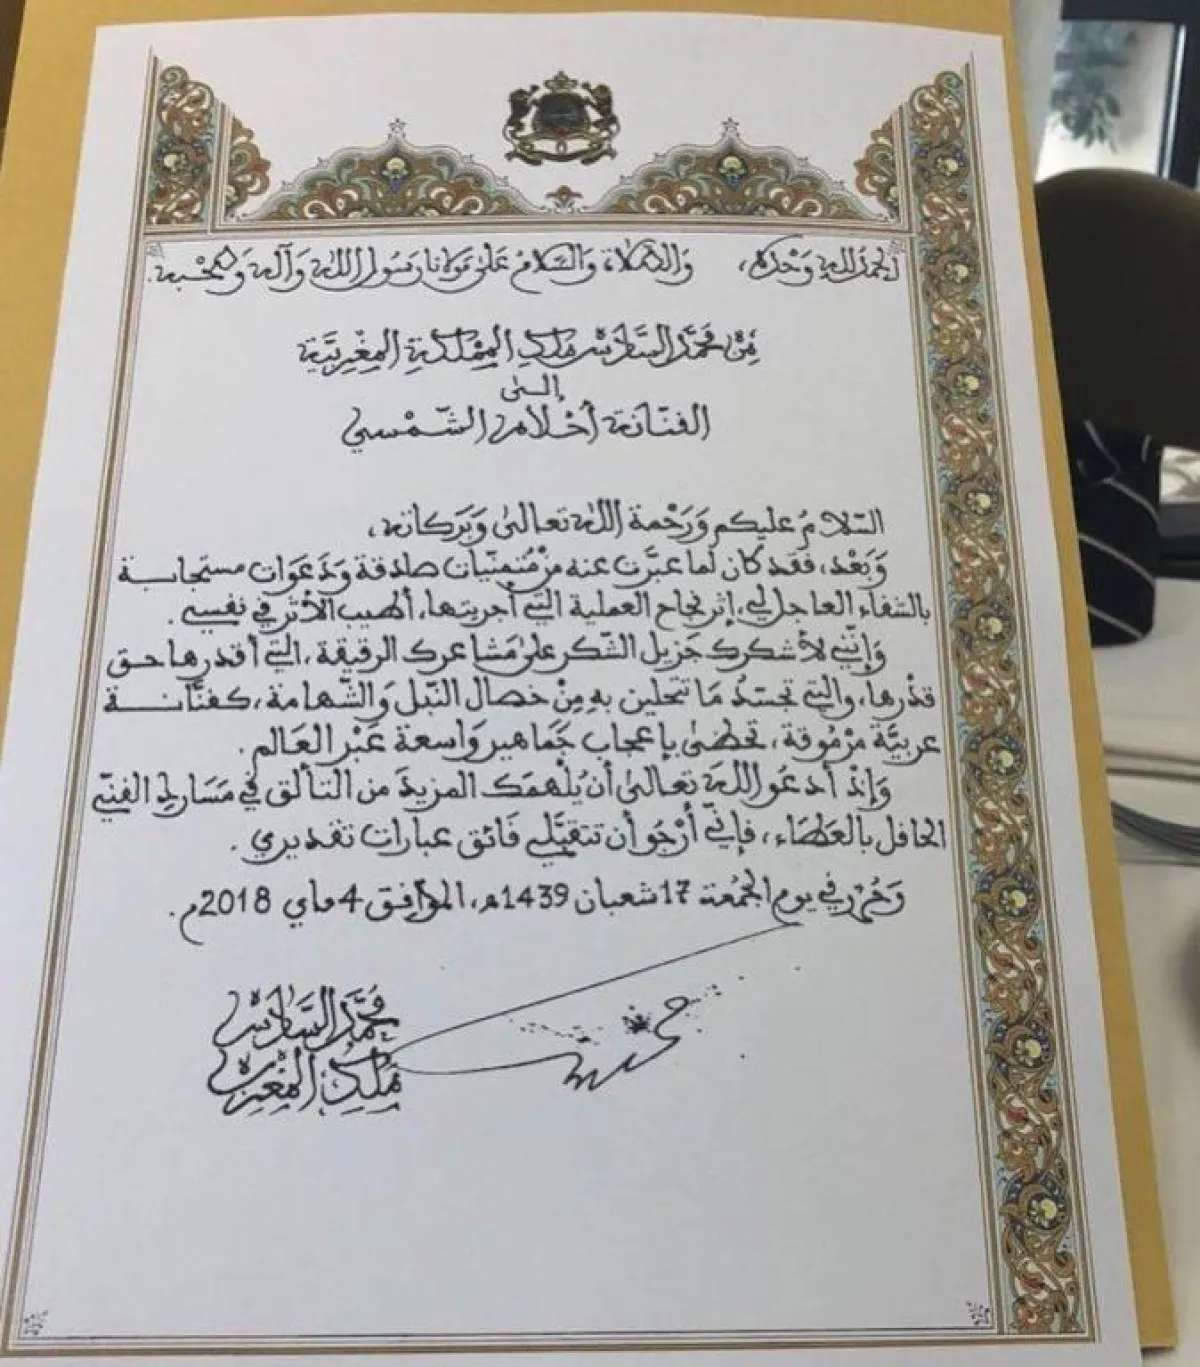 الحمد لله وحده، والصلاة والسلام على مولانا رسول الله وآله وصحبه.
من محمد السادس ملك المملكة المغربية
إلى
الفنانة أحلام الشمسي
السّلامُ عليكم وَرَحْمة الله تعالىٰ وَبَركاته،
وَبَعْد، فقد كان لما عبَّرت عنه من مُتمنّيات صادقة وَدَعَوات مستجابة
بالشفاء العاجل لي، إثر نجاح العملية التي أجريتها، أطيب الأثر في نفسي.
وَإنّني لأشكرك جَزيل الشّكر على مَشاعرك الرقيقة، التي أقدرها حق
قدْرها، والتي تجسّدُ مَا تتحلين بهِ مِنْ خصال النّبل وَالشّهامة، كفنّانة
عربيّة مَرْمُوقة، تحظىٰ بإعجاب جَماهير وَاسعة عَبْر العَالم.
وَإذْ أدعُو اللهَ تعالىٰ أن يُلْهمَك المزيدَ من التألق في مَسَارك الفنّي
الحافل بالعَطاء، فإنّي أرْجُو أن تتقبّلي فَائق عبارات تقديري.
وَحُرّر في يوم الجمُعة 17 شعبان 1439هـ، الموَافق 4 ماي 2018م.
محمد السادس
ملك المغرب